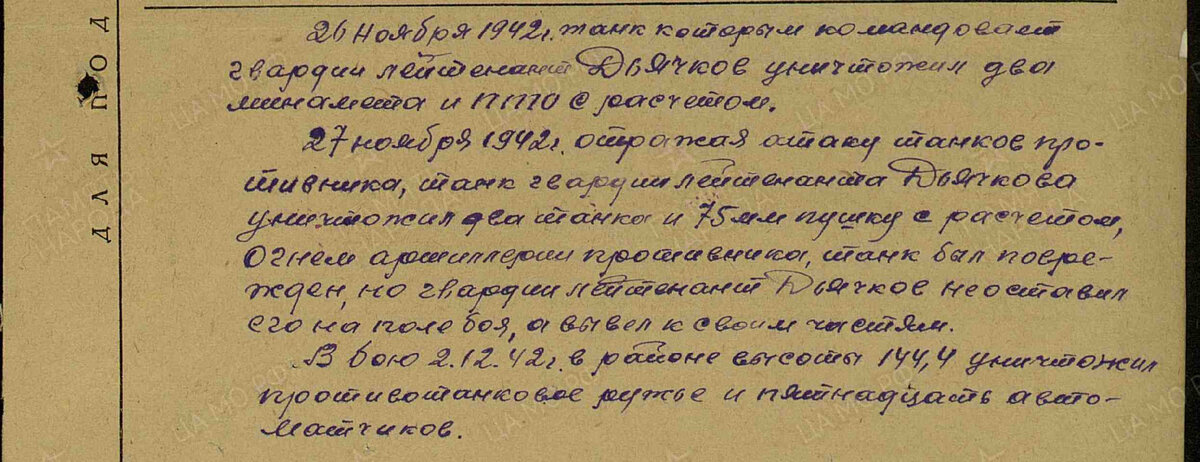 26 ноября 1942г. танк которым командовал
гвардии лейтенант Дьячков уничтожил два
минамета и ППТО с расчетом.
27 ноября 1942г. отражая атаку танков про-
тивника, танк гвардии лейтенанта Дьячкова
уничтожил два танка и 75мм пушку с расчетом,
Огнем артиллерии противника, танк был повре-
жден, но гвардии лейтенант Дьячков не оставил
его на поле боя, а вывел к своим частям.
В бою 2.12.42г. в районе высоты 144,4 уничтожил
противотанковое ружье и пятнадцать авто-
матчиков.
ДЛЯ ПОД